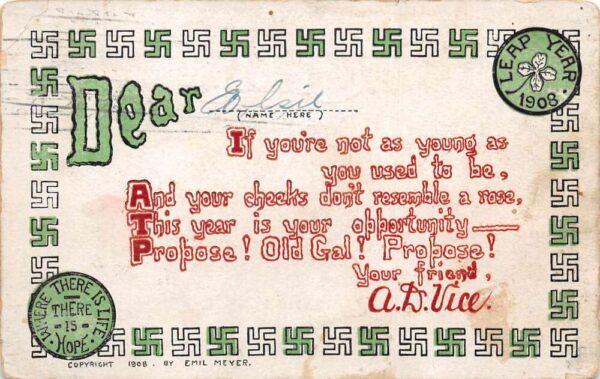 LEAP YEAR
1908.
Dear Elsie
(NAME HERE)
If you're not as young as
you used to be,
And your cheeks don't resemble a rose,
This year is your opportunity—
Propose! Old Gal! Propose!
Your friend,
A.D.Vice.
WHERE THERE IS LIFE
THERE
-IS-
HOPE
COPYRIGHT 1908. BY EMIL MEYER.